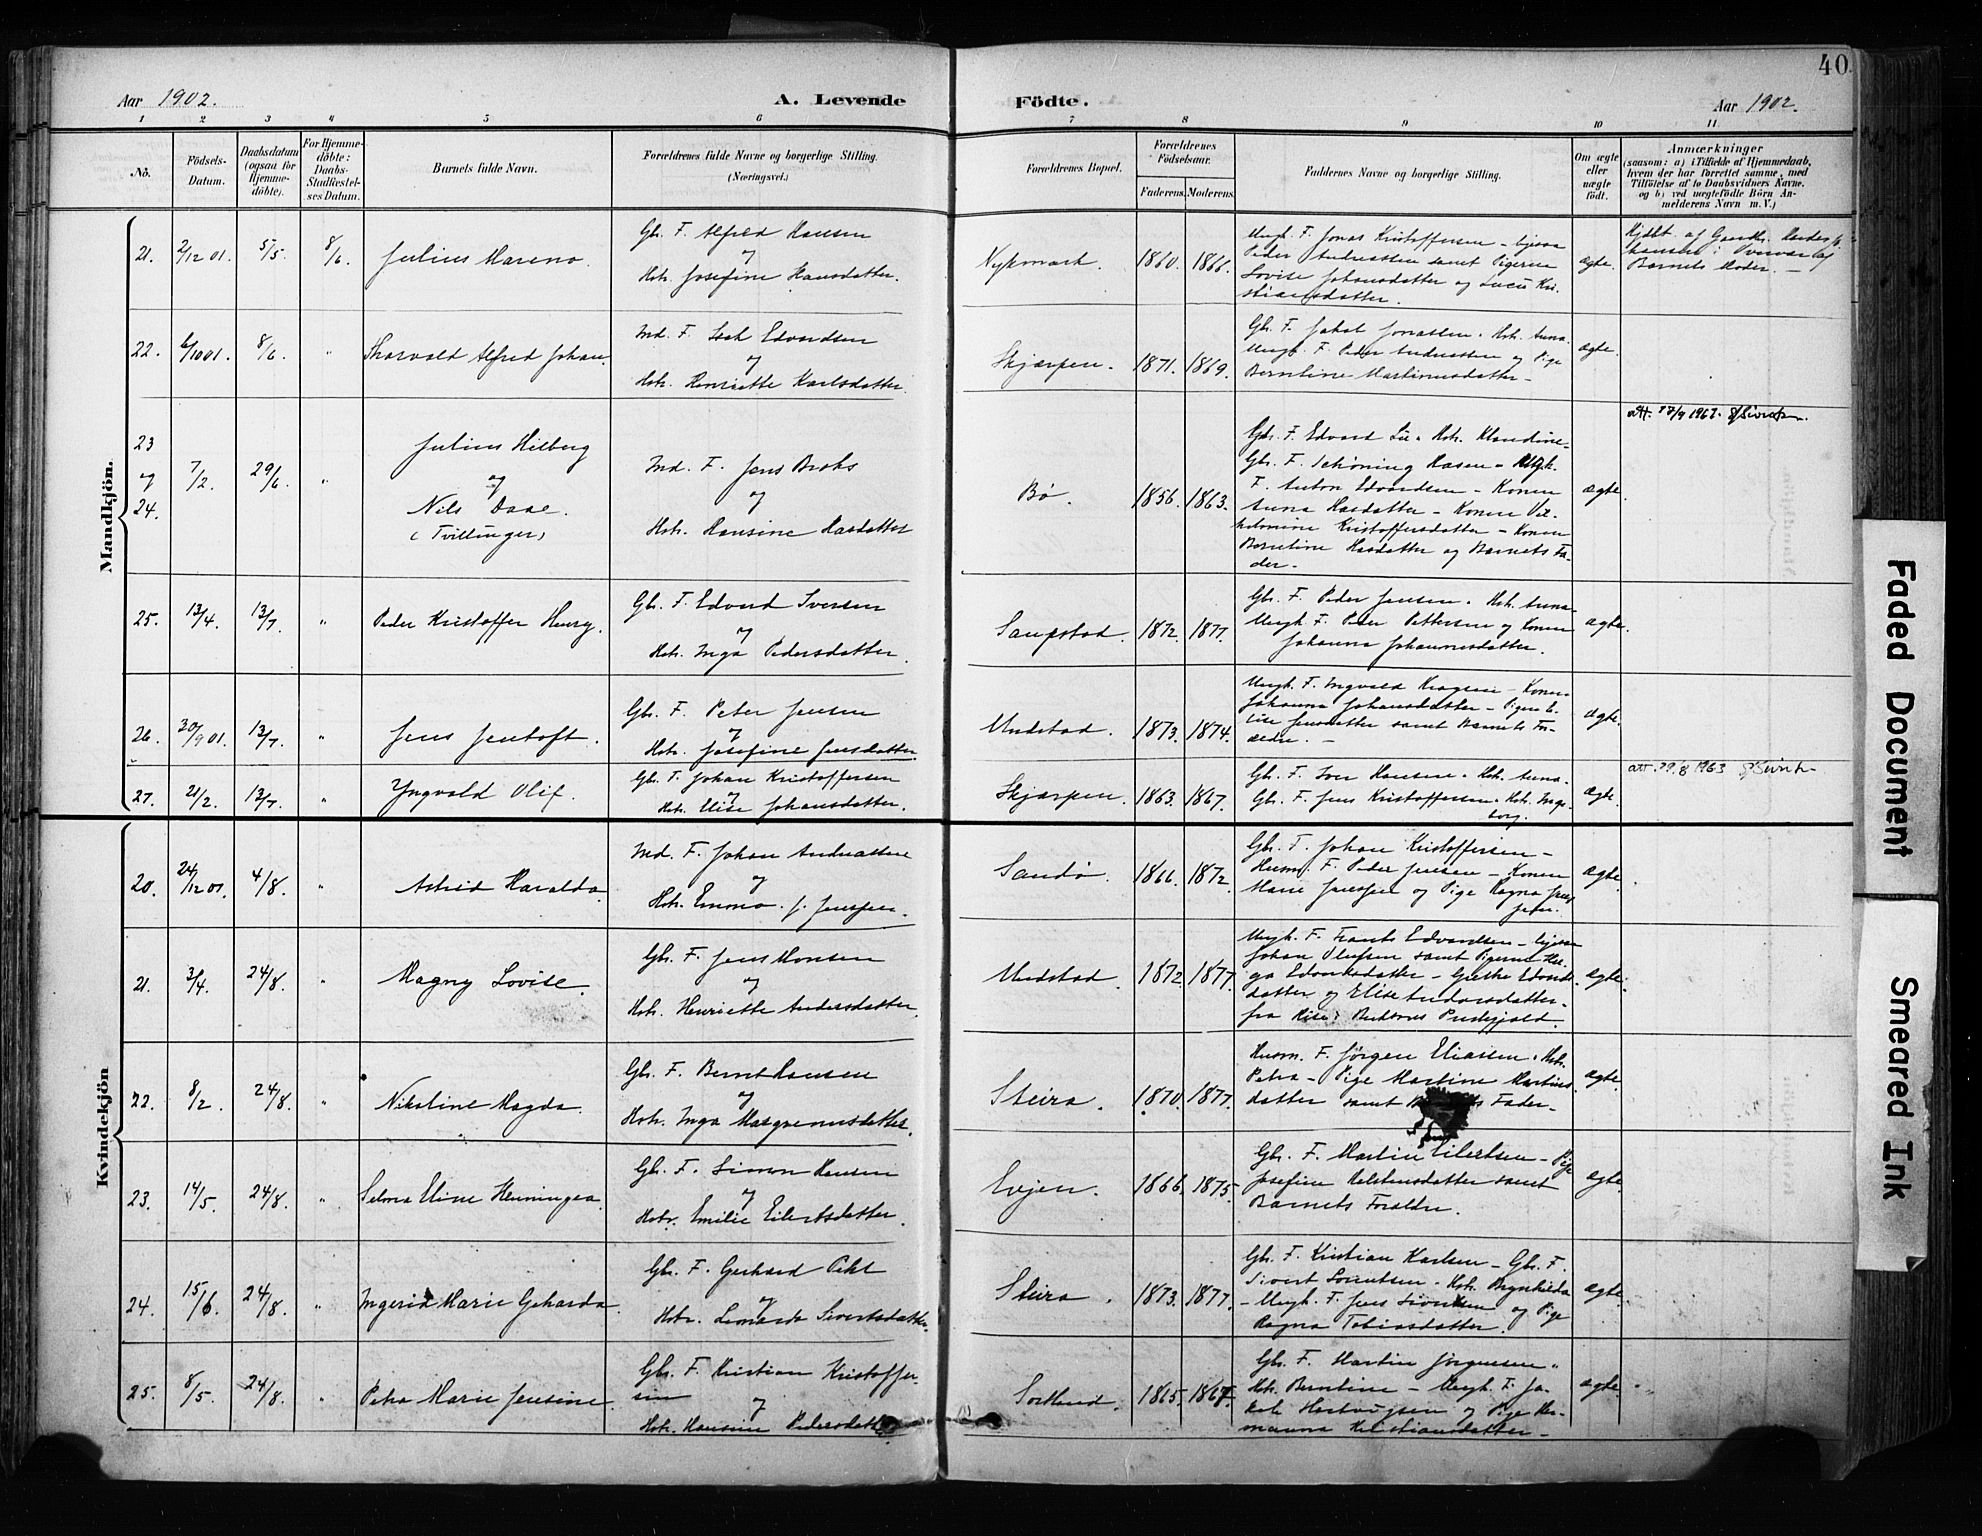 40.
Aar 1902.
A. Levende
Födte.
Aar 1902.
1 2 3 4 5 6 7 8 9 10 11
No.
Födsels-Datum.
Daabsdatum (ogsaa for Hjemme-döbte).
For Hjemme-döbte: Daabs-Stadfæstel-ses Datum.
Barnets fulde Navn.
Forældrenes fulde Navne og borgerlige Stilling. (Næringsvei.)
Forældrenes Bopæl.
Forældrenes Födselsaar.
Faderens. Moderens.
Faddernes Navne og borgerlige Stilling.
Om ægte eller uægte født.
Anmærkninger
(saasom: a) i Tilfælde af Hjemmedaab,
hvem der har forrettet samme, med
Tilføielse af to Daabsvidners Navne,
og b) ved uægtefødte Børn An-
melderens Navn m. V.)
Mandkjön.
21. 2/12 01. 5/5. 8/6. Julius Mareno.
Gbr. F. Alfred Hansen
og
Hstr. Josefine Hansdatter.
Nykmark. 1860. 1866.
Ungk. F. Jonas Kristoffersen -
Peder Andreassen samt Pigerne
Lovise Johansdatter og Lucie Kri-
stiansdatter.
ægte.
Hjdbt. af Gaardbr.
Barnets Moder. -
22. 6/10 01. 8/6. " Thorvald Alfred Johan.
Ind. F. Isak Edvardsen
og
Hstr. Henriette Karlsdatter.
Skjærpen. 1871. 1869.
Gbr. F. Jakob Jonassen. Hstr. Anna.
Ungk. F. Peder Andreassen og Pige
Berntine Martinusdatter -
ægte.
23 og 24. 7/2. 29/6. "
Julius Hilberg
og
Nils Daae.
(Tvillinger)
Ind. F. Jens Broks
og
Hstr. Hansine Hansdatter
Bø. 1856. 1863.
Gbr. F. Edvard Lie. Hstr. Klaudine -
Gbr. F. Schøning Hasen - Ungk.
F. Anton Edvardsen - Konen
Anna Hansdatter - Konen Vil-
helmine Kristoffersdatter - Konen
Berntine Hansdatter og Barnets Fa-
der. -
ægte.
att. 27/9 1962.
25. 13/4. 13/7. " Peder Kristoffer Henry.
Gbr. F. Edvard Iversen
og
Hstr. Inga Pedersdatter.
Saupstad. 1872. 1877.
Gbr. F. Peder Jensen. Hstr. Anna -
Ungk. F. Peder Pettersen og Konen
Johanna Johannesdatter.
ægte.
26. 20/9 01. 13/7. " Jens Jentoft.
Gbr. F. Peter Jensen
og
Hstr. Josefine Jensdatter.
Undstad. 1873. 1874.
Ungk. F. Ingvald Hagen - Konen
Johanna Johansdatter - Pigen E-
lise Jensdatter samt Barnets For-
ældre. -
ægte.
27. 21/2. 13/7. " Yngvald Olif.
Gbr. F. Johan Kristoffersen
og
Hstr. Elise Johansdatter.
Skjærpen. 1863. 1867.
Gbr. F. Iver Hansen. Hstr. Anna.
Gbr. F. Jens Kristoffersen. Hstr. Inge-
borg.
ægte.
att. 29.8 1963
Kvindekjön
20. 24/12 01. 4/8. " Astrid Haralda.
Ind. F. Johan Andreassen
og
Hstr. Emma f. Jenssen.
Sandø. 1866. 1872.
Gbr. F. Johan Kristoffersen -
Husm. F. Peder Jensen - Konen
Marie Jenssen og Pige Ragna Jens-
sen.
ægte.
21. 3/4. 24/8. " Magny Lovise.
Gbr. F. Jens Monsen
og
Hstr. Henriette Andersdatter.
Undstad. 1872. 1877.
Ungk. F. Frants Edvardsen -
Johan Olufsen samt Pigerne Hel-
ga Edvardsdatter - Grethe Edvards-
datter og Elise Andersdatter -
fra Buksnes Prestgjeld.
ægte.
22. 8/2. 24/8. " Nikoline Magda.
Gbr. F. Bernt Hansen
og
Hstr. Inga Margrenusdatter.
Steira. 1870. 1877.
Husm. F. Jørgen Eliassen. Hstr.
Petra - Pige Martine Martins-
datter samt Barnets Fader -
ægte.
23. 14/5. 24/8. " Selma Eline Henningea.
Gbr. F. Simon Hansen
og
Hstr. Emilie Eilertsdatter.
Evjen. 1866. 1875.
Gbr. F. Martin Eilertsen - Pige
Josefine Kelstensdatter samt
Barnets Forældre.
ægte.
24. 15/6. 24/8. " Ingerid Marie Geharda.
Gbr. F. Gerhard
og
Hstr. Leonarda Sivertsdatter.
Steira. 1873. 1877.
Gbr. F. Kristian Karlsen - Gbr. F.
Sivert Lorentsen. Hstr. Brynhilda
- Ungk. F. Jens Sivertsen og Pige
Ragna Tobiasdatter.
ægte.
25. 8/5. 24/8. " Petra Marie Jensine.
Gbr. F. Kristian Kristoffer-
sen
og
Hstr. Hansine Pedersdatter
Sortland. 1865. 1867.
Gbr. F. Martin Jørgensen.
Hstr. Berntine - Ungk. F. Ja-
kob Hartvigsen og Pige Her-
manna Kristiansdatter -
ægte.
Faded Document
Smeared Ink